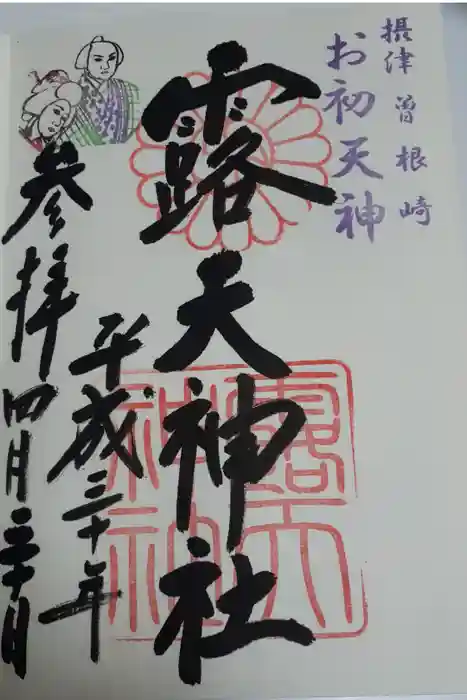 摂津 曽根崎
お初天神
露天神社
平成三十年
参拝 四月三十日
露天
神社